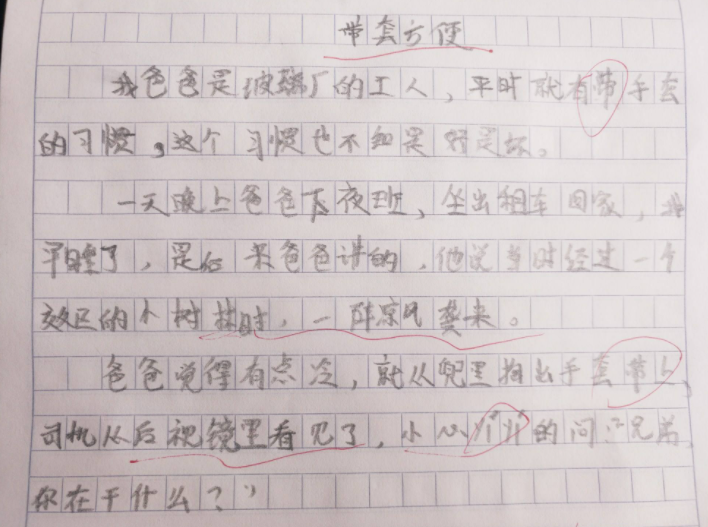 带套方便
我爸爸是玻璃厂的工人，平时就有带手套
的习惯，这个习惯也不知是好是坏。
一天晚上爸爸下夜班，坐出租车回家，我
早睡了，是后来爸爸讲的，他说当时经过一个
效区的小树林时，一阵凉风袭来。
爸爸觉得有点冷，就从兜里掏出手套带上，
司机从后视镜里看见了，小心翼翼的问："兄弟，
你在干什么？"